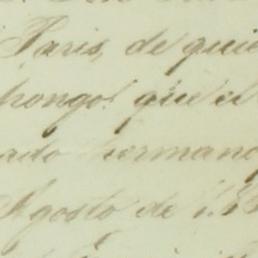 Paris, de quie
pongo! que el
ado hermano
Agosto de 1.8